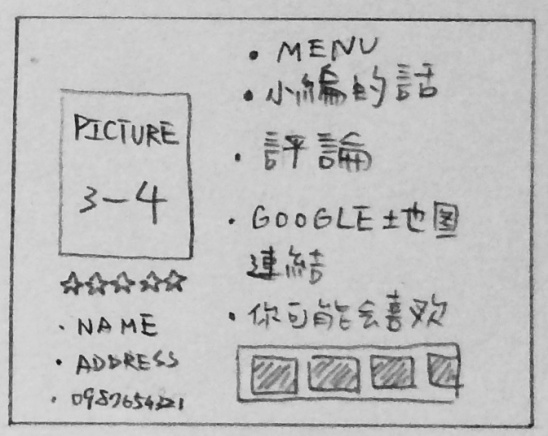 PICTURE
3-4
• NAME
• ADDRESS
• 0987654321
• MENU
• 小編的話
• 評論
• GOOGLE 土地图
連結
• 你可能会喜欢